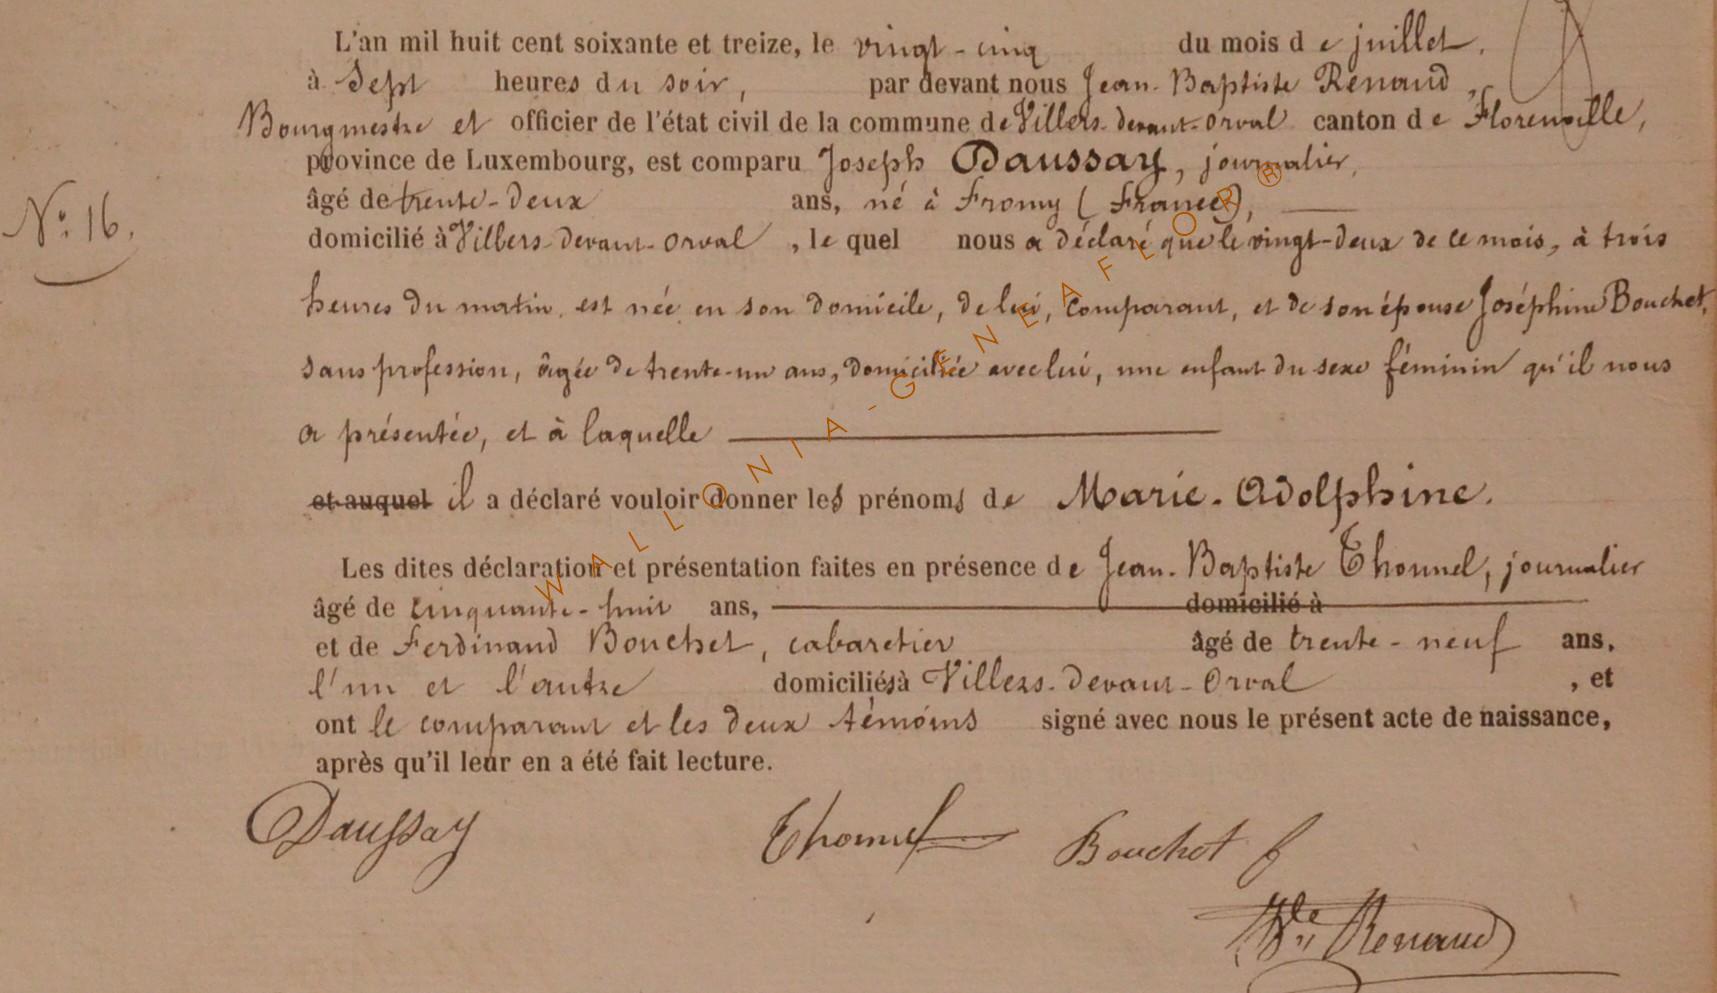 L'an mil huit cent soixante et treize, le vingt-cinq du mois de juillet.
à Sept heures du soir, par devant nous Jean-Baptiste Renaud,
Bourgmestre et officier de l'état civil de la commune de Villers-devant-Orval canton de Florenville,
province de Luxembourg, est comparu Joseph Daussay, journalier,
N° 16.
âgé de trente-deux ans, né à Fromy (France),
domicilié à Villers-devant-Orval, lequel nous a déclaré que le vingt-deux de ce mois, à trois
heures du matin, est née en son domicile, de lui, comparant, et de son épouse Joséphine Bouchet,
sans profession, âgée de trente-un ans, domiciliée avec lui, une enfant du sexe féminin qu'il nous
a présentée, et à laquelle
et auquel il a déclaré vouloir donner les prénoms de Marie-Adolphine.
Les dites déclaration et présentation faites en présence de Jean-Baptiste Thonnel, journalier
âgé de cinquante-huit ans, domicilié à
et de Ferdinand Bouchet, cabaretier âgé de trente-neuf ans,
l'un et l'autre domiciliés à Villers-devant-Orval, et
ont le comparant et les deux témoins signé avec nous le présent acte de naissance,
après qu'il leur en a été fait lecture.
Daussay Thonnel Bouchet f
Renaud
WALLONIA-GENEAFLOR®